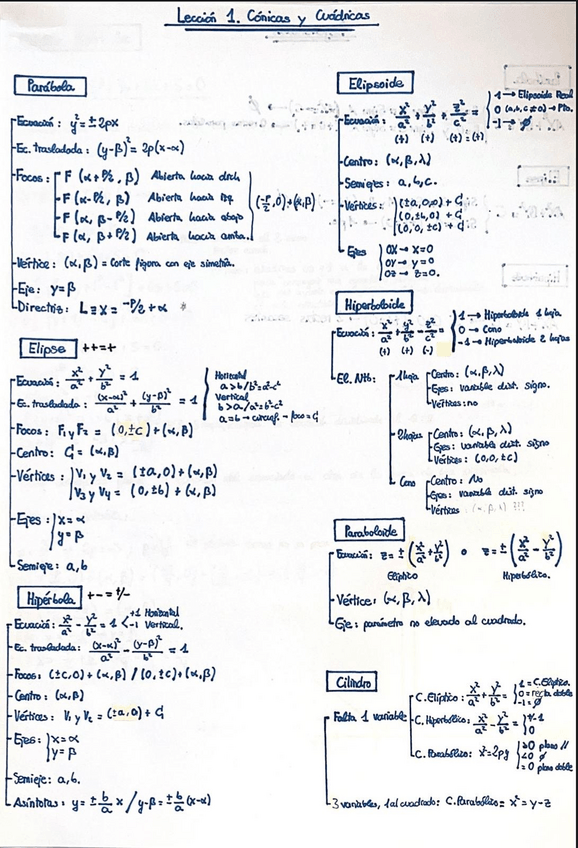 Lección 1. Cónicas y Cuádricas
Parábola
Ecuación: y² = ± 2px
Ec. trasladada: (y-β)² = 2p(x-α)
Focos: F (α+P/2, β) Abierta hacia drch
F (α-P/2, β) Abierta hacia izq.
F (α, β-P/2) Abierta hacia abajo
F (α, β+P/2) Abierta hacia arriba.
(-P/2, 0) + (α, β)
Vértice: (α, β) = Corte figura con eje simetría.
Eje: y = β
Directriz: L ≡ X = -P/2 + α *
Elipse ++=+
Ecuación: x²/a² + y²/b² = 1
Ec. trasladada: (x-α)²/a² + (y-β)²/b² = 1
Horizontal
a>b / b²=a²-c²
Vertical
b>a / a²=b²-c²
a=b → circunf. - foco = C
Focos: F₁ y F₂ = (0, ±c) + (α, β)
Centro: C = (α, β)
Vértices: V₁ y V₂ = (±a, 0) + (α, β)
V₃ y V₄ = (0, ±b) + (α, β)
Ejes: x = α
y = β
Semieje: a, b
Hipérbola +-=+/-
Ecuación: x²/a² - y²/b² = 1 < +1 Horizontal
-1 Vertical.
Ec. trasladada: (x-α)²/a² - (y-β)²/b² = 1
Focos: (±c, 0) + (α, β) / (0, ±c) + (α, β)
Centro: (α, β)
Vértices: V₁ y V₂ = (±a, 0) + C
Ejes: x = α
y = β
Semieje: a, b.
Asíntotas: y = ± b/a x / y-β = ± b/a (x-α)
Elipsoide
Ecuación: x²/a² + y²/b² + z²/c² =
(+) (+) (+) = (+)
1 → Elipsoide Real
0 (a,b,c ≠ 0) → Pto.
-1 → ∅
Centro: (α, β, λ)
Semiejes: a, b, c.
Vértices: (±a, 0, 0) + C
(0, ±b, 0) + C
(0, 0, ±c) + C
Ejes OX → X=0
OY → y=0
OZ → Z=0.
Hiperboloide
Ecuación: x²/a² + y²/b² - z²/c² =
(+) (+) (-)
1 → Hiperboloide 1 hoja
0 → Cono
-1 → Hiperboloide 2 hojas
El. Ntb: 1 hoja Centro: (α, β, λ)
Ejes: variable dist. signo.
Vértices: no
2 hojas Centro: (α, β, λ)
Ejes: variable dist. signo
Vértices: (0, 0, ±c)
Cono Centro: No
Ejes: variable dist. signo
Vértices: (α, β, λ) ???
Paraboloide
Ecuación: z = ± (x²/a² + y²/b²) o z = ± (x²/a² - y²/b²)
Elíptico Hiperbólico.
Vértice: (α, β, λ)
Eje: parámetro no elevado al cuadrado.
Cilindro
Falta 1 variable
C. Elíptico: x²/a² + y²/b² =
1 = C. Elíptico.
0 = recta doble
-1 = ∅
C. Hiperbólico: x²/a² - y²/b² =
+/-1
0
C. Parabólico: x² = 2py
>0 plano //
<0 ∅
=0 plano doble
3 variables, 1 al cuadrado: C. Parabólico = x² = y - z